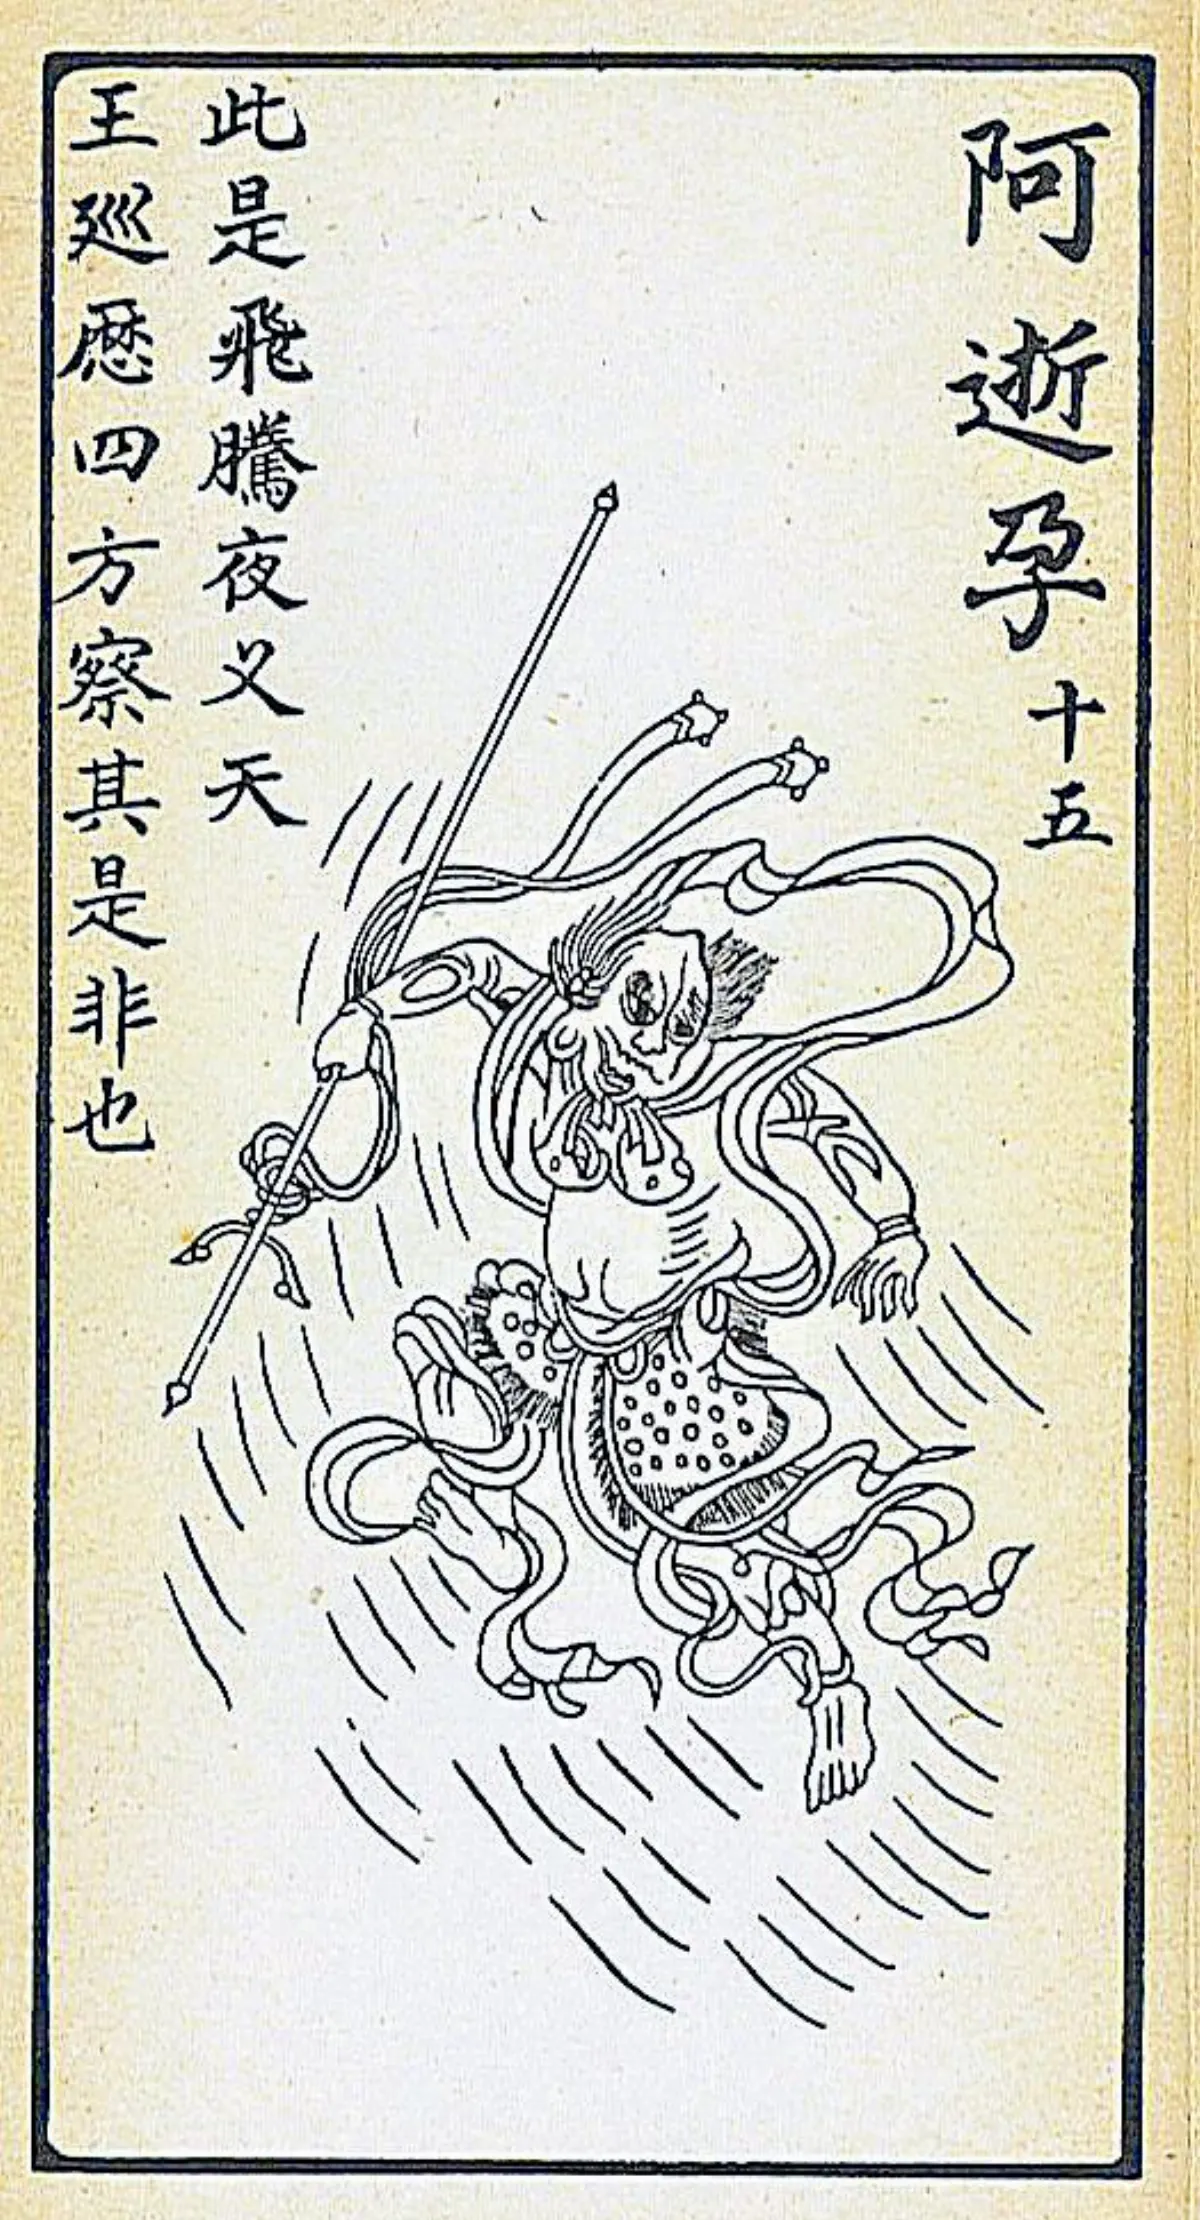 阿逝孕十五
此是飛騰夜乂天
王巡歷四方察其是非也